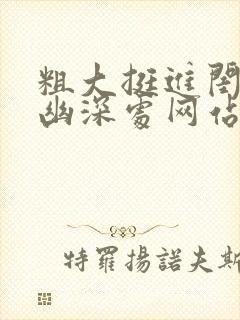 粗大挺進閏
幽深處网佔
特羅揚諾夫斯